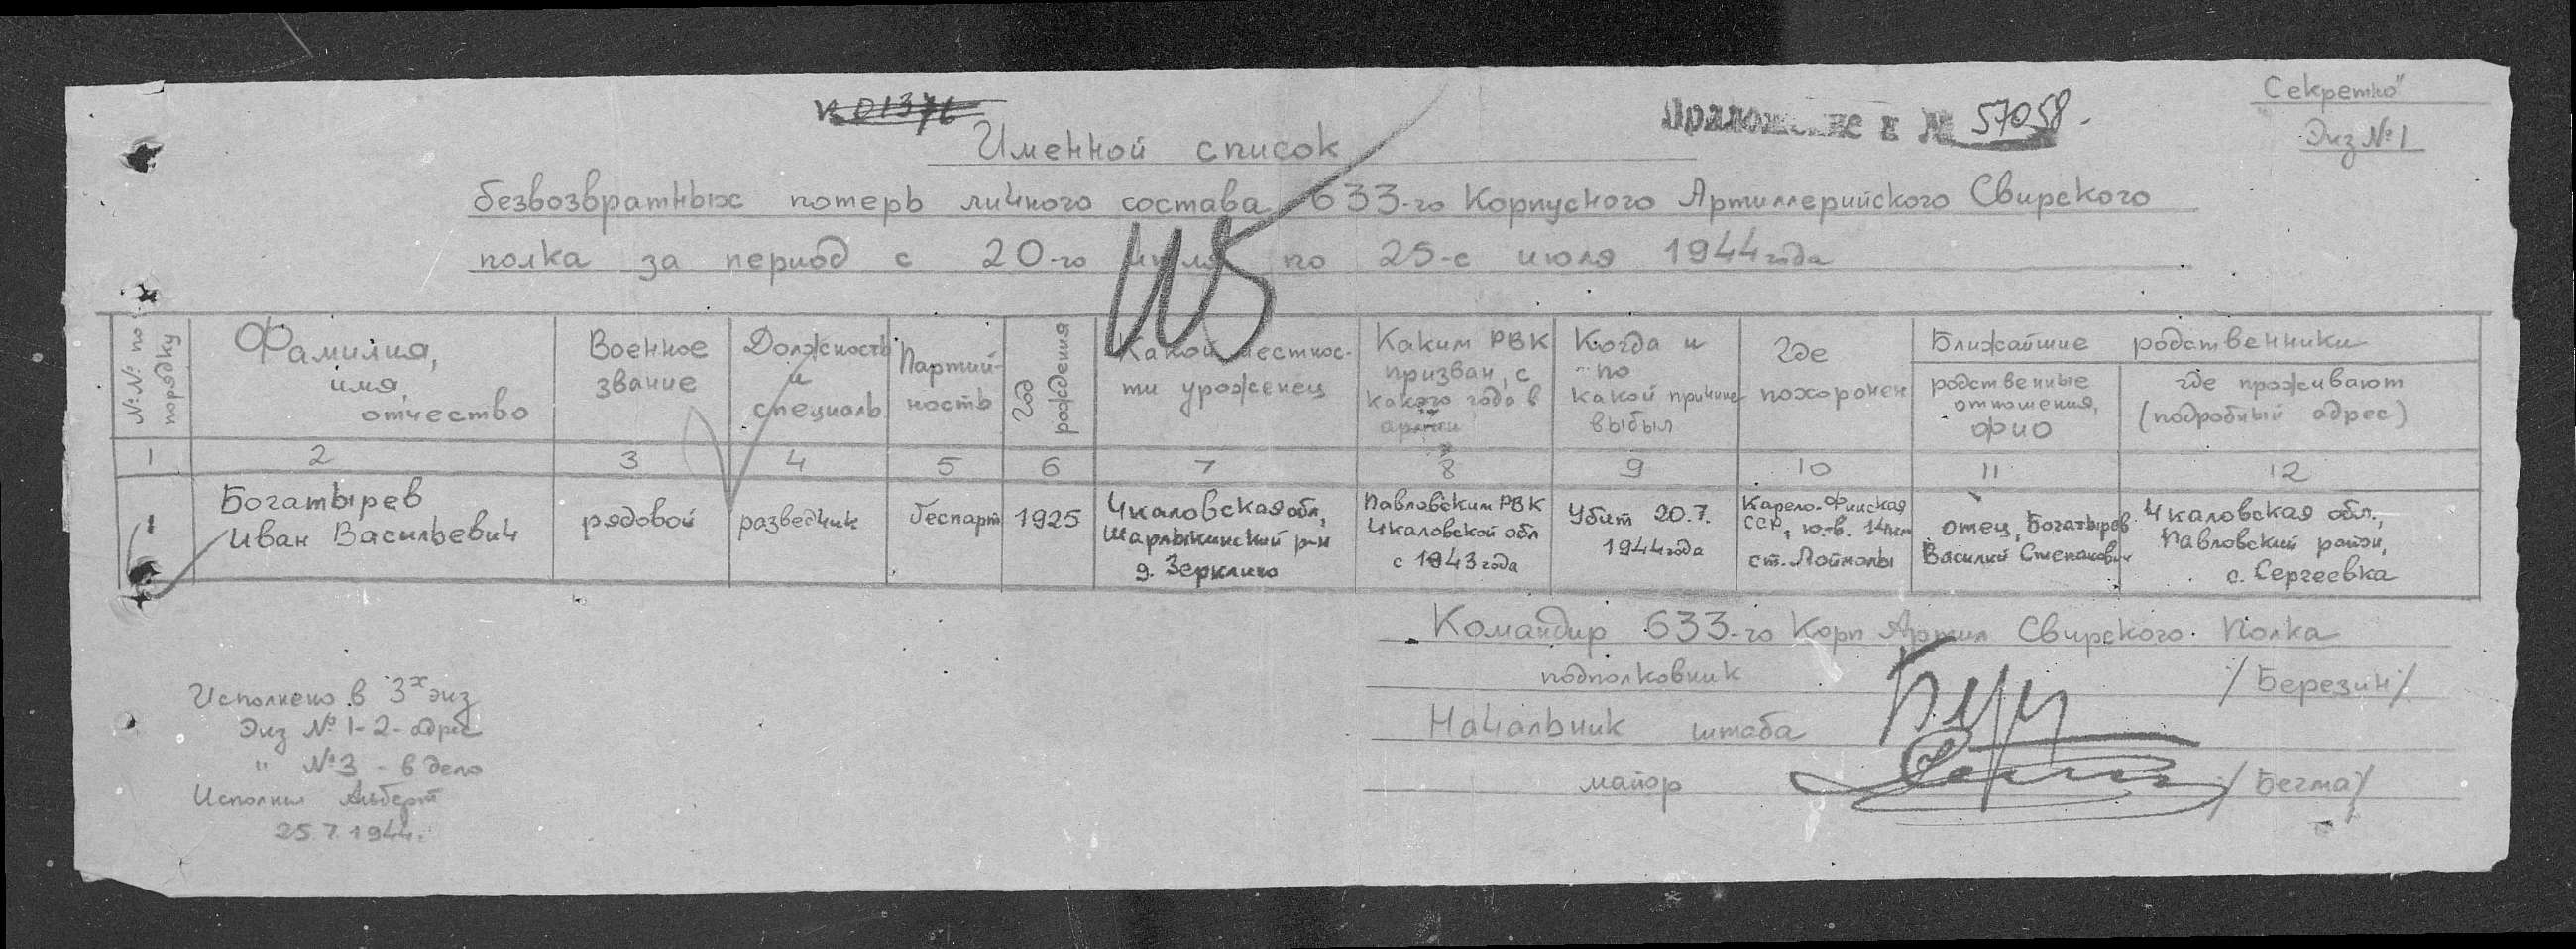 Секретно"
Экз № 1
к 01376
Приложение к № 57058.
Именной список
безвозвратных потерь личного состава 633-го Корпусного Артиллерийского Свирского
полка за период с 20-го июля по 25-е июля 1944 года
№№ по порядку
Фамилия, имя, отчество
Военное звание
Должность и специаль
Партий-ность
Год рождения
Какой местнос-ти уроженец
Каким РВК призван, с какого года в армии
Когда и по какой причине выбыл
Где похоронен
Ближайшие родственники
родственные отношения, ФИО
где проживают (подробный адрес)
1 2 3 4 5 6 7 8 9 10 11 12
1
Богатырев
Иван Васильевич
рядовой
разведчик
беспарт
1925
Чкаловская обл,
Шарлыкинский р-н
д. Зерклино
Павловским РВК
Чкаловской обл
с 1943 года
Убит 20.7.
1944 года
Карело-Финская
ССР, ю.-в. 14км
ст. Лоймолы
отец, Богатырев
Василий Степанович
Чкаловская обл.,
Павловский район,
с. Сергеевка
Командир 633-го Корп Артил Свирского Полка
подполковник /Березин/
Начальник штаба
майор /Бегма/
Исполнено в 3х экз
Экз № 1-2 - адрес
" №3 - в дело
Исполнил Альберт
25.7.1944.